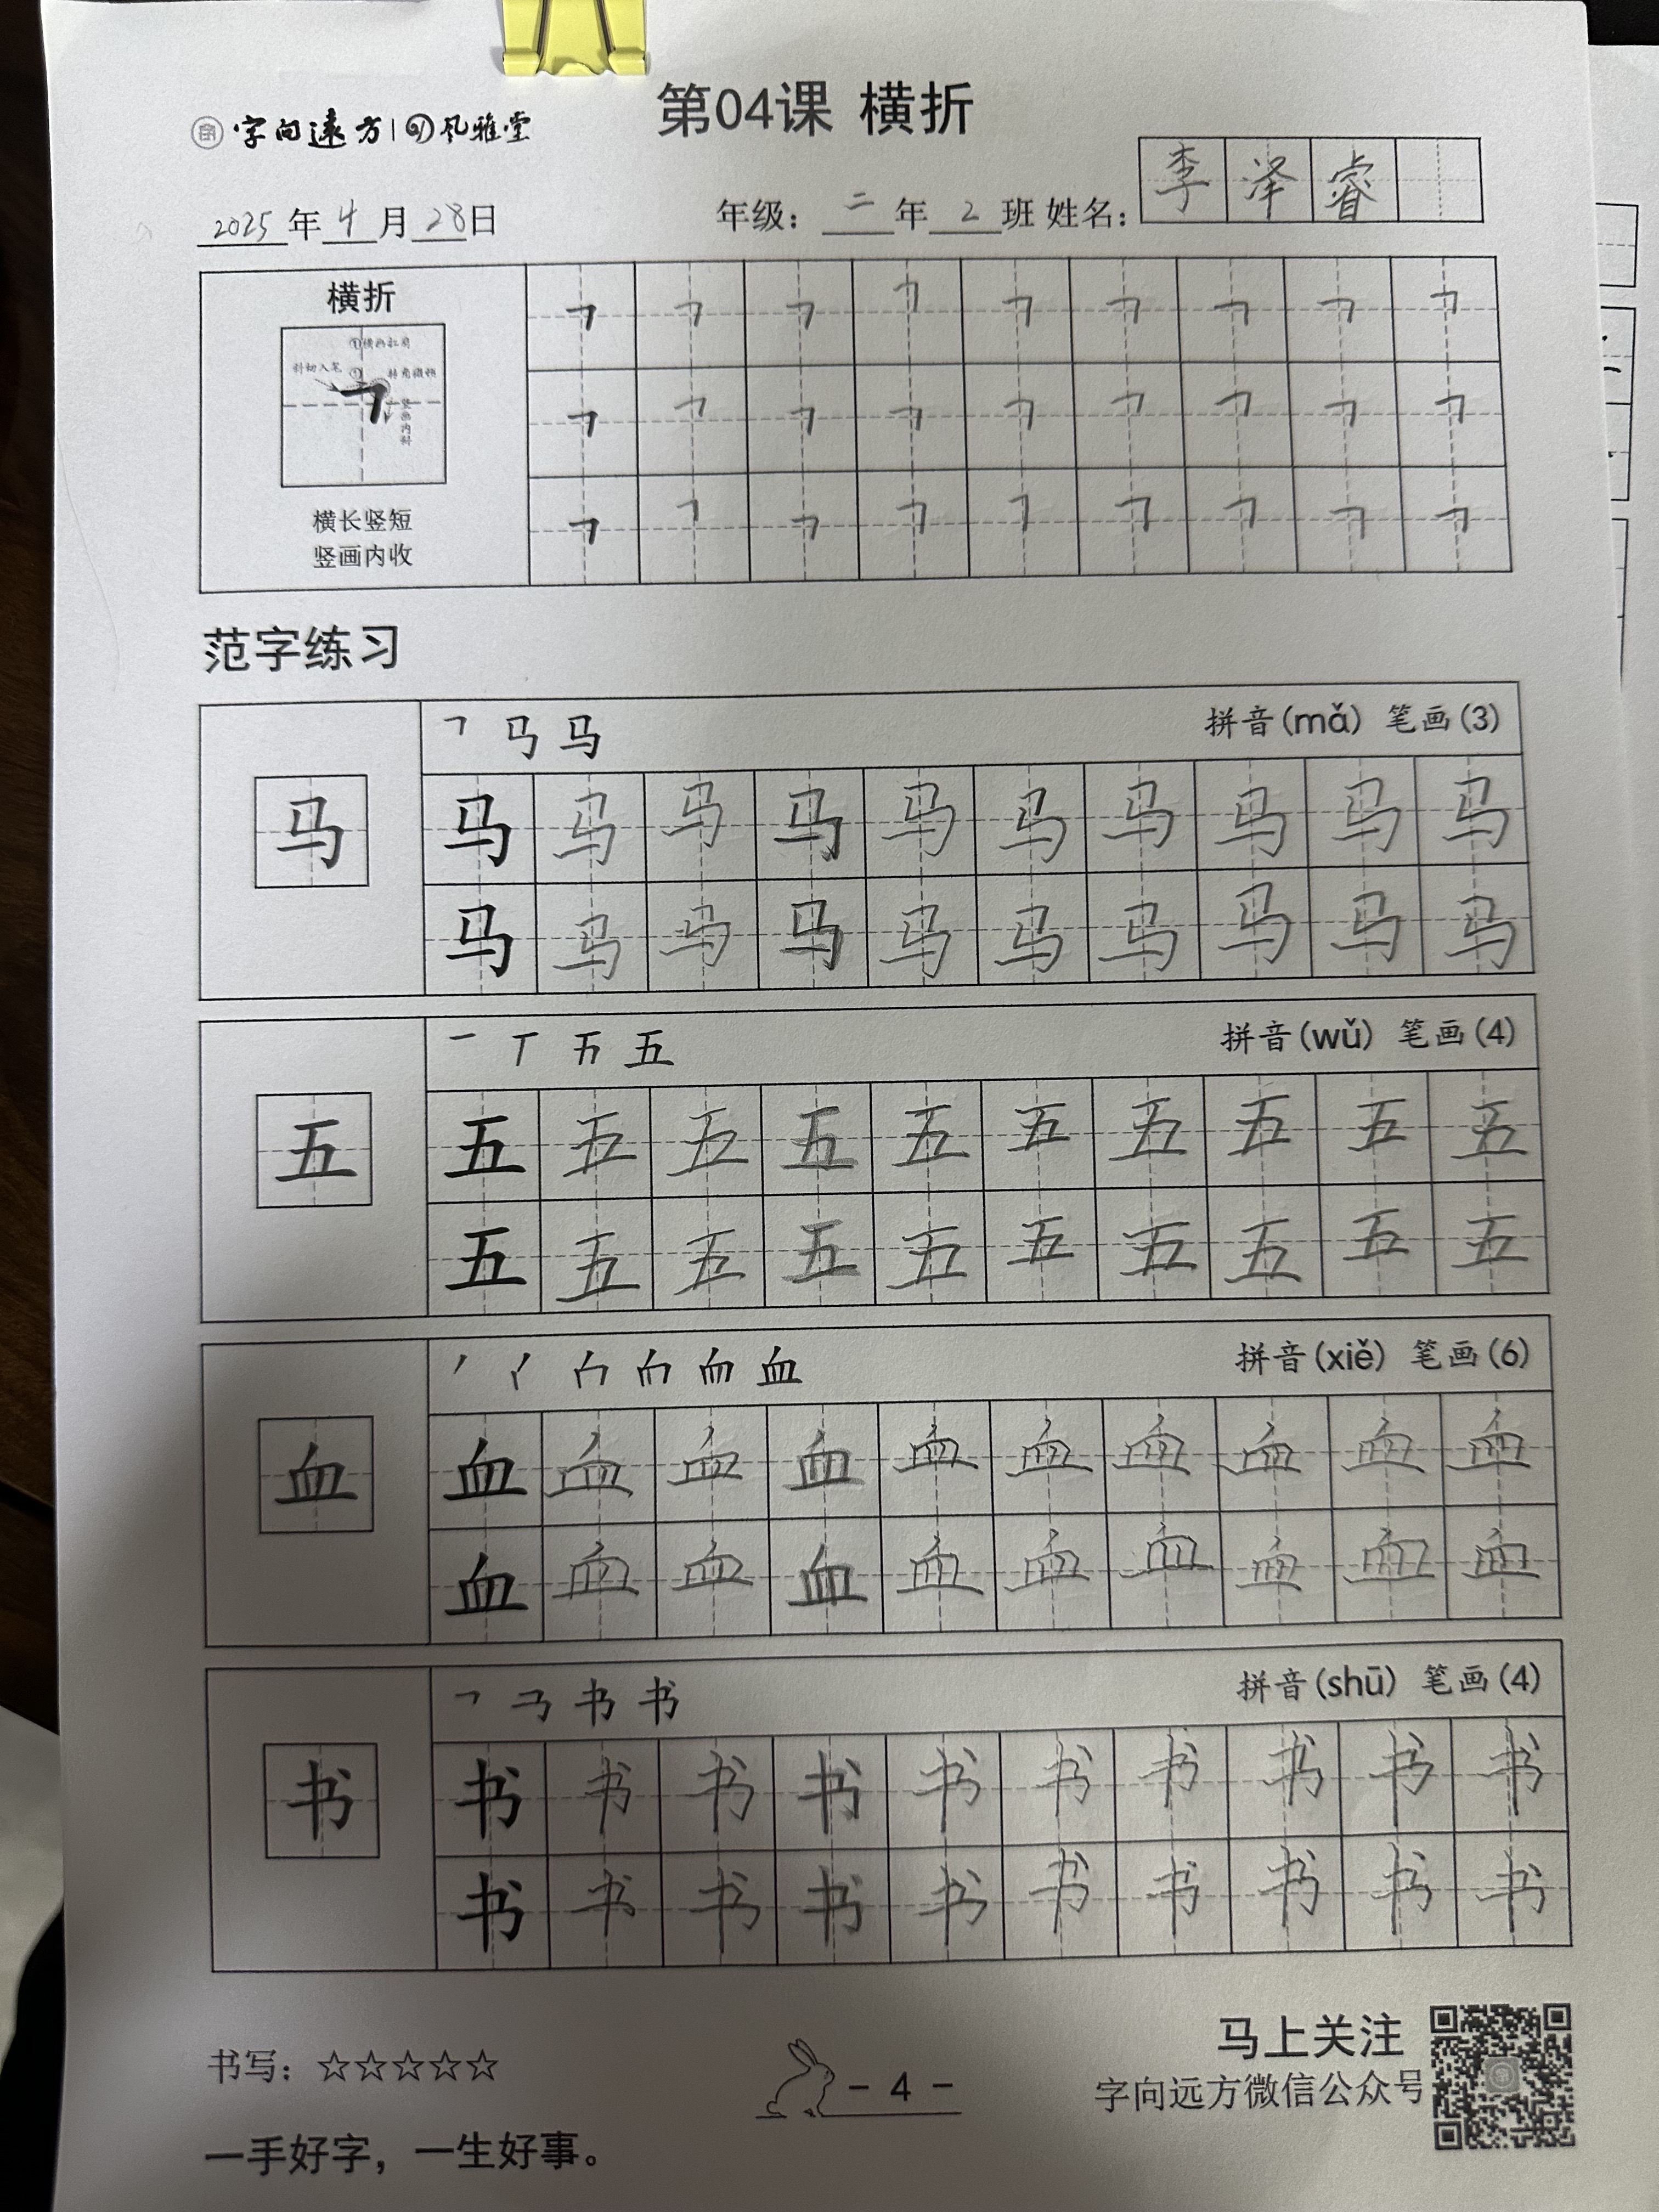 第04课 横折
字向远方 | 风雅堂
2025年4月28日 年级：二年2班 姓名：李泽睿
横折
①横画扛肩
斜切入笔 ② 转角微顿
竖画内斜
横长竖短
竖画内收
㇕ ㇕ ㇕ ㇕ ㇕ ㇕ ㇕ ㇕ ㇕
㇕ ㇕ ㇕ ㇕ ㇕ ㇕ ㇕ ㇕ ㇕
㇕ ㇕ ㇕ ㇕ ㇕ ㇕ ㇕ ㇕ ㇕
范字练习
马 拼音(mǎ) 笔画(3)
马
马 马 马 马 马 马 马 马 马 马
马 马 马 马 马 马 马 马 马 马
一 丅 五 拼音(wǔ) 笔画(4)
五
五 五 五 五 五 五 五 五 五 五
五 五 五 五 五 五 五 五 五 五
血 拼音(xiě) 笔画(6)
血
血 血 血 血 血 血 血 血 血 血
血 血 血 血 血 血 血 血 血 血
书 拼音(shū) 笔画(4)
书
书 书 书 书 书 书 书 书 书 书
书 书 书 书 书 书 书 书 书 书
书写：☆☆☆☆☆
- 4 -
马上关注
字向远方微信公众号
一手好字，一生好事。